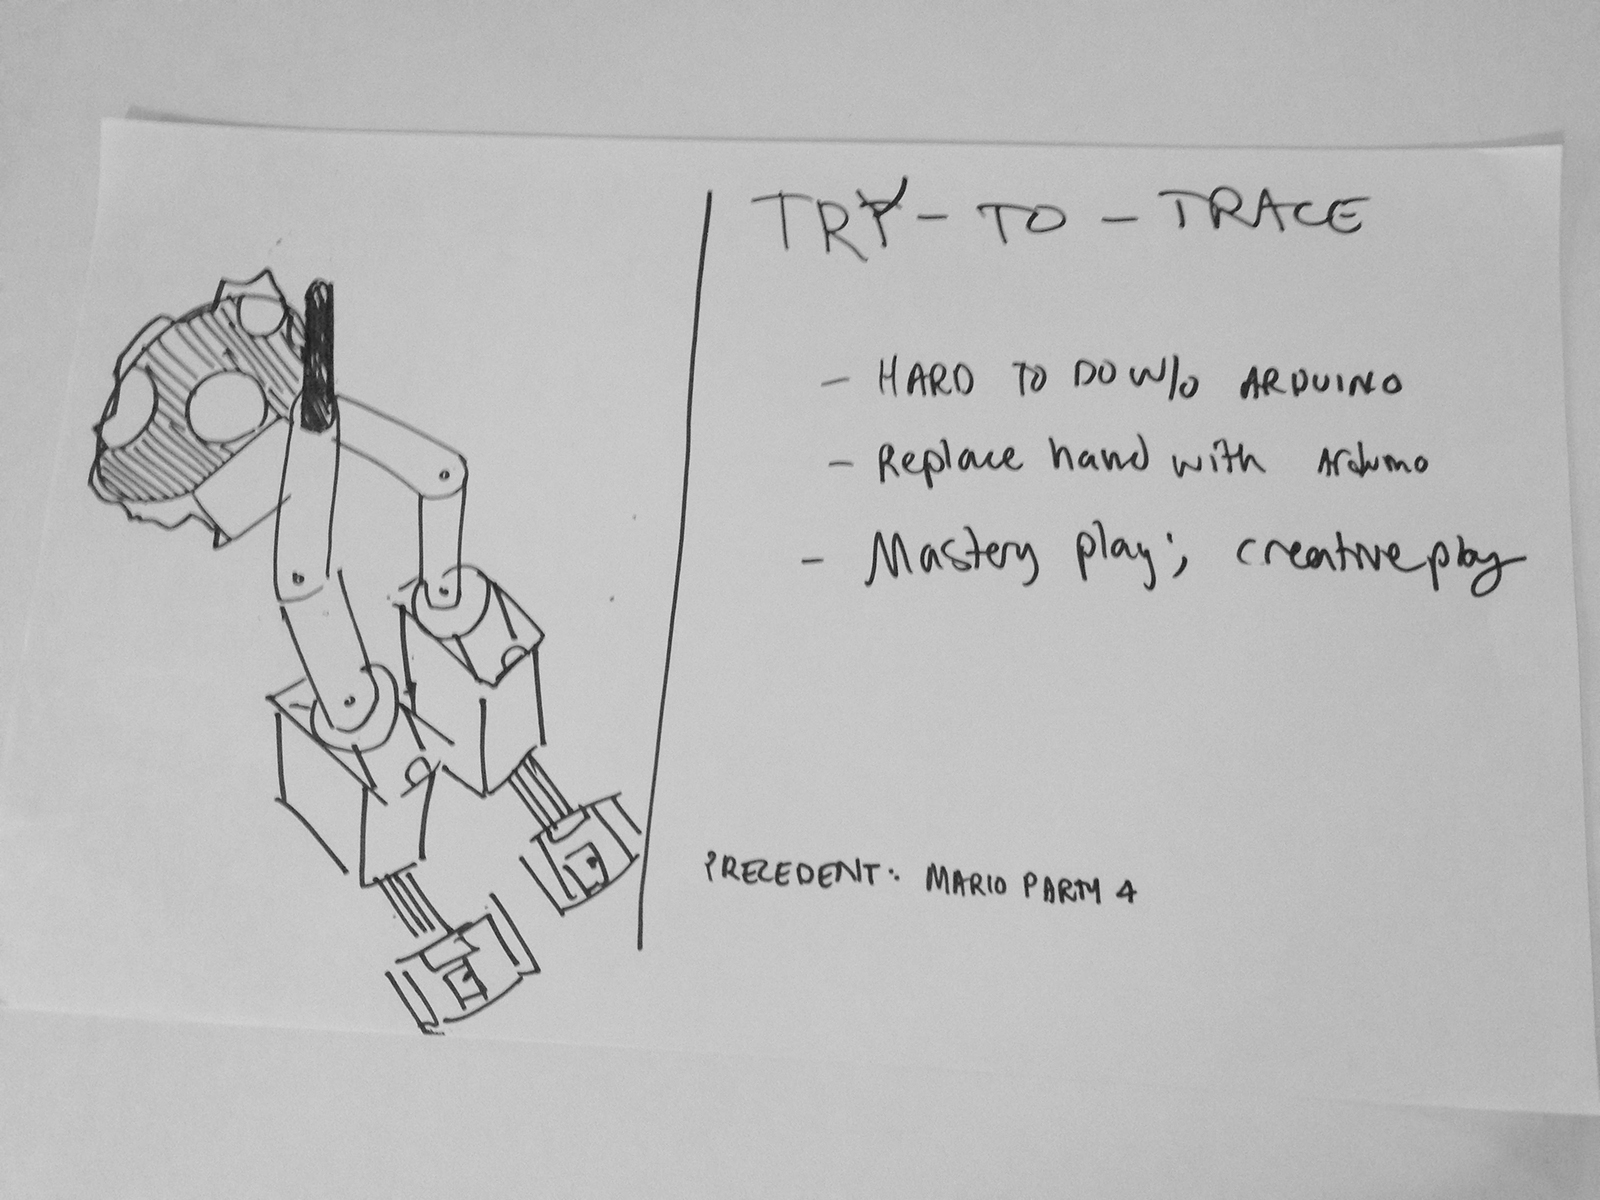 TRY - TO - TRACE
- HARD TO DO W/O ARDUINO
- Replace hand with Arduino
- Mastery play; creative play
PRECEDENT: MARIO PARTY 4